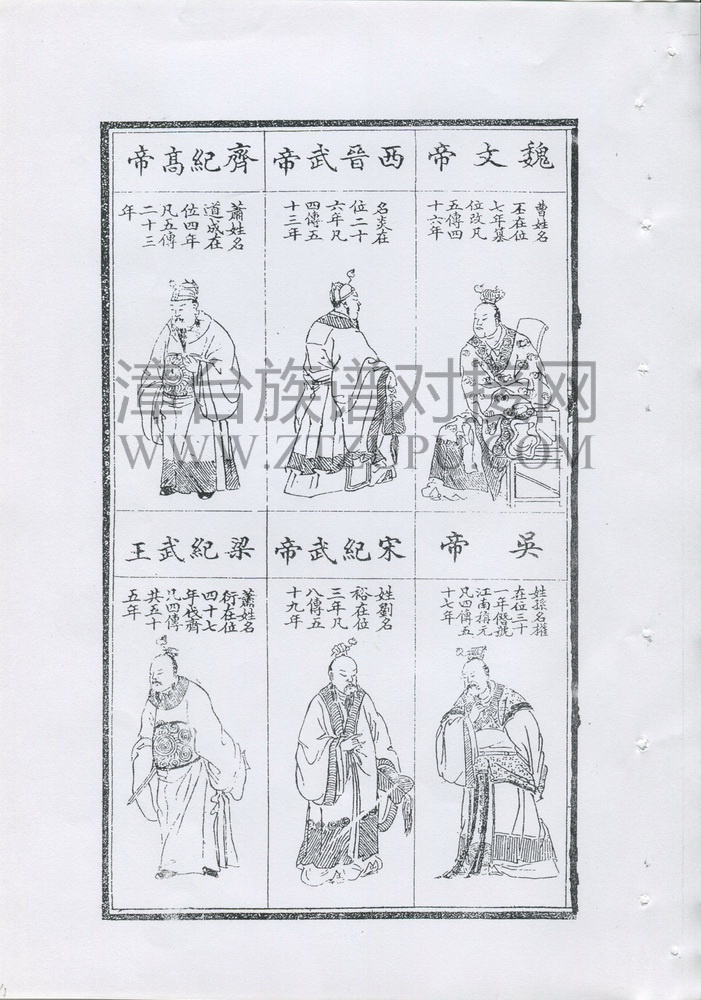 魏文帝
曹姓名
丕在位
七年篡
位改凡
五傳四
十六年
西晉武帝
名炎在
位二十
六年凡
四傳五
十三年
齊紀高帝
蕭姓名
道成在
位四年
凡五傳
二十三
年
吳帝
姓孫名權
在位三十
一年僭號
江南稱元
凡四傳五
十七年
宋紀武帝
姓劉名
裕在位
三年凡
八傳五
十九年
梁紀武王
蕭姓名
衍在位
四十七
年伐齊
凡四傳
共五十
五年
漳台族谱对接网
WWW.ZTZUPU.COM